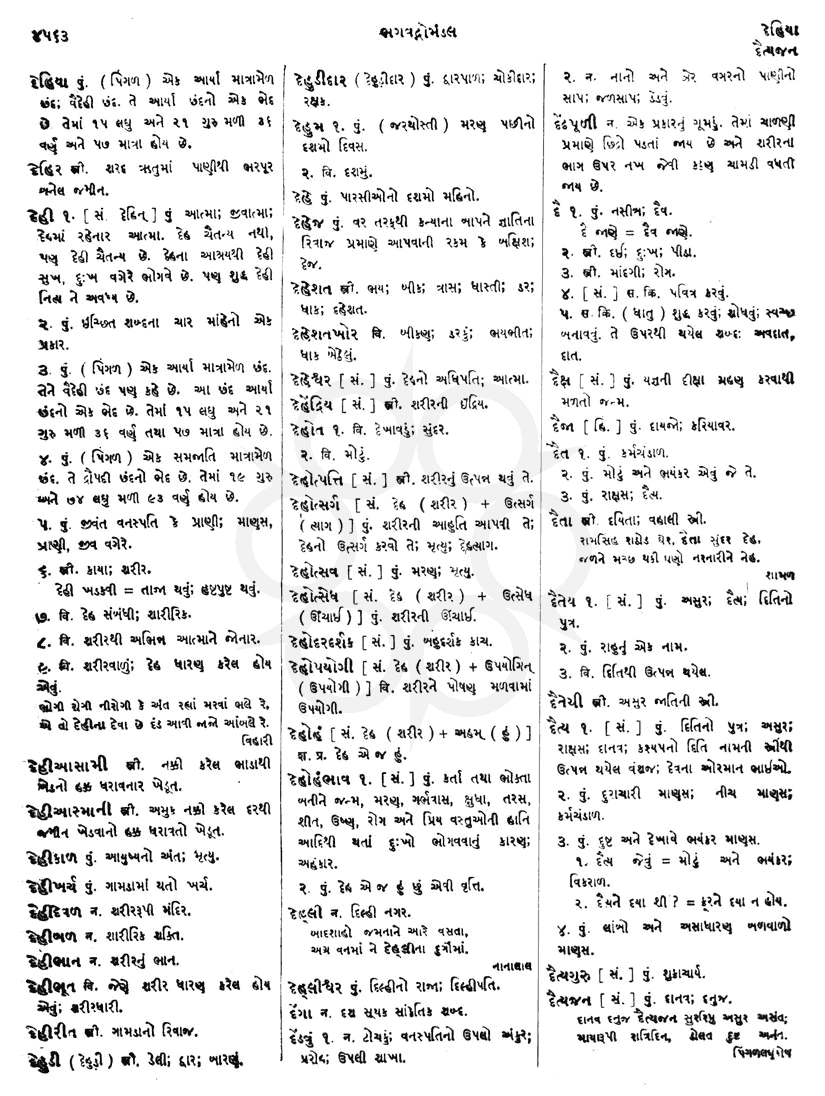 ૪૫૬૩
ભગવદ્ગોમંડલ
દેહિયા
દૈત્યજન
દેહિયા પું. ( પિંગળ ) એક આર્યા માત્રામેળ
છંદ; વૈદેહી છંદ. તે આર્યા છંદનો એક ભેદ
છે. તેમાં ૧૫ લઘુ અને ૨૧ ગુરુ મળી ૩૬
વર્ણ અને ૫૭ માત્રા હોય છે.
દેહિર સ્ત્રી. શરદ ઋતુમાં પાણીથી ભરપૂર
બનેલ જમીન.
દેહી ૧. [ સં. દેહિન્ ] પું આત્મા; જીવાત્મા;
દેહમાં રહેનાર આત્મા. દેહ ચૈતન્ય નથી,
પણ દેહી ચૈતન્ય છે. દેહના આશ્રયથી દેહી
સુખ, દુઃખ વગેરે ભોગવે છે. પણ શુદ્ધ દેહી
નિત્ય ને અવધ્ય છે.
૨. પું. ઇચ્છિત શબ્દના ચાર માંહેનો એક
પ્રકાર.
૩. પું. ( પિંગળ ) એક આર્યા માત્રામેળ છંદ.
તેને વૈદેહી છંદ પણ કહે છે. આ છંદ આર્યા
છંદનો એક ભેદ છે. તેમાં ૧૫ લઘુ અને ૨૧
ગુરુ મળી ૩૬ વર્ણ તથા ૫૭ માત્રા હોય છે.
૪. પું. ( પિંગળ ) એક સમજાતિ માત્રામેળ
છંદ. તે દ્રૌપદી છંદનો ભેદ છે. તેમાં ૧૯ ગુરુ
અને ૭૪ લઘુ મળી ૯૩ વર્ણ હોય છે.
૫. પું. જીવંત વનસ્પતિ કે પ્રાણી; માણસ,
પ્રાણી, જીવ વગેરે.
૬. સ્ત્રી. કાયા; શરીર.
દેહી ખડકવી = તાજા થવું; હૃષ્ટપુષ્ટ થવું.
૭. વિ. દેહ સંબંધી; શારીરિક.
૮. વિ. શરીરથી અભિન્ન આત્માને જોનાર.
૯. વિ. શરીરવાળું; દેહ ધારણ કરેલ હોય
એવું.
ભોગી રોગી નીરોગી કે અંત રહ્યાં મરવાં ભલે રે,
એ તો દેહીના દેવા છે દંડ આવી જાને આંબલે રે.
વિહારી
દેહીઆસામી સ્ત્રી. નક્કી કરેલ ભાડાથી
ખેડનો હક્ક ધરાવનાર ખેડૂત.
દેહીઆસ્માની સ્ત્રી. અમુક નક્કી કરેલ દરથી
જમીન ખેડવાનો હક્ક ધરાવતો ખેડૂત.
દેહીકાળ પું. આયુષ્યનો અંત; મૃત્યુ.
દેહીખર્ચ પું. ગામડામાં થતો ખર્ચ.
દેહીદેવળ ન. શરીરરૂપી મંદિર.
દેહીબળ ન. શારીરિક શક્તિ.
દેહીભાન ન. શરીરનું ભાન.
દેહીભૂત વિ. જેણે શરીર ધારણ કરેલ હોય
એવું; શરીરધારી.
દેહીરીત સ્ત્રી. ગામડાનો રિવાજ.
દેહુડી ( દેહુડ઼ી ) સ્ત્રી. ડેલી; દ્વાર; બારણું.
દેહુડીદાર ( દેહુડ઼ીદાર ) પું. દ્વારપાળ; ચોકીદાર;
રક્ષક.
દેહુમ ૧. પું. ( જરથોસ્તી ) મરણ પછીનો
દશમો દિવસ.
૨. વિ. દશમું.
દેહે પું. પારસીઓનો દશમો મહિનો.
દેહેજ પું. વર તરફથી કન્યાના બાપને જ્ઞાતિના
રિવાજ પ્રમાણે આપવાની રકમ કે બક્ષિશ;
દેજ.
દેહેશત સ્ત્રી. ભય; બીક; ત્રાસ; ધાસ્તી; ડર;
ધાક; દહેશત.
દેહેશતખોર વિ. બીકણ; ડરકું; ભયભીત;
ધાક બેઠેલું.
દેહેશ્વર [ સં. ] પું. દેહનો અધિપતિ; આત્મા.
દેહેંદ્રિય [ સં. ] સ્ત્રી. શરીરની ઇંદ્રિય.
દેહોત ૧. વિ. દેખાવડું; સુંદર.
૨. વિ. મોટું.
દેહોત્પત્તિ [ સં. ] સ્ત્રી. શરીરનું ઉત્પન્ન થવું તે.
દેહોત્સર્ગ [ સં. દેહ ( શરીર ) + ઉત્સર્ગ
( ત્યાગ ) ] પું. શરીરની આહુતિ આપવી તે;
દેહનો ઉત્સર્ગ કરવો તે; મૃત્યુ; દેહત્યાગ.
દેહોત્સવ [ સં. ] પું. મરણ; મૃત્યુ.
દેહોત્સેધ [ સં. દેહ ( શરીર ) + ઉત્સેધ
( ઊંચાઈ ) ] પું. શરીરની ઊંચાઈ.
દેહોદરદર્શક [ સં. ] પું. બહુદર્શક કાચ.
દેહોપયોગી [ સં. દેહ ( શરીર ) + ઉપયોગિન્
( ઉપયોગી ) ] વિ. શરીરને પોષણ મળવામાં
ઉપયોગી.
દેહોહં [ સં. દેહ ( શરીર ) + અહમ્ ( હું ) ]
શ. પ્ર. દેહ એ જ હું.
દેહોહંભાવ ૧. [ સં. ] પું. કર્તા તથા ભોક્તા
બનીને જન્મ, મરણ, ગર્ભત્રાસ, ક્ષુધા, તરસ,
શીત, ઉષ્ણ, રોગ અને પ્રિય વસ્તુઓની હાનિ
આદિથી થતાં દુઃખો ભોગવવાનું કારણ;
અહંકાર.
૨. પું. દેહ એ જ હું છું એવી વૃત્તિ.
દેહ્લી ન. દિલ્હી નગર.
બાદશાહો જમનાને આરે વસતા,
અગ્ર વનમાં ને દેહ્લીના દુર્ગોમાં.
નાનાલાલ
દેહ્લીશ્વર પું. દિલ્હીનો રાજા; દિલ્હીપતિ.
દેંગા ન. દશ સૂચક સાંકેતિક શબ્દ.
દેંડવું ૧. ન. ટોચકું; વનસ્પતિનો ઉપલો અંકુર;
પ્રરોહ; ઉપલી શાખા.
૨. ન. નાનો અને ઝેર વગરનો પાણીનો
સાપ; જળસાપ; ડેંડવું.
દેંદપૂળી ન. એક પ્રકારનું ગૂમડું. તેમાં ચાળણી
પ્રમાણે છિદ્રો પડતાં જાય છે અને શરીરના
ભાગ ઉપર નખ જેવી કઠણ ચામડી વધતી
જાય છે.
દૈ ૧. પું. નસીબ; દૈવ.
દૈ જાણે = દૈવ જાણે.
૨. સ્ત્રી. દઈ; દુઃખ; પીડા.
૩. સ્ત્રી. માંદગી; રોગ.
૪. [ સં. ] સ. ક્રિ. પવિત્ર કરવું.
૫. સ. ક્રિ. ( ધાતુ ) શુદ્ધ કરવું; શોધવું; સ્વચ્છ
બનાવવું. તે ઉપરથી થયેલ શબ્દ: અવદાત,
દાત.
દૈક્ષ [ સં. ] પું. યજ્ઞની દીક્ષા ગ્રહણ કરવાથી
મળતો જન્મ.
દૈજા [ હિં. ] પું. દાયજો; કરિયાવર.
દૈત ૧. પું. કર્મચંડાળ.
૨. પું. મોટું અને ભયંકર એવું જે તે.
૩. પું. રાક્ષસ; દૈત્ય.
દૈતા સ્ત્રી. દયિતા; વહાલી સ્ત્રી.
રામસિંહ રાઠોડ ઘેર, દૈતા સુંદર દેહ,
જળને મચ્છ થકી ઘણો નરનારીને નેહ.
શામળ
દૈતેય ૧. [ સં. ] પું. અસુર; દૈત્ય; દિતિનો
પુત્ર.
૨. પું. રાહુનું એક નામ.
૩. વિ. દિતિથી ઉત્પન્ન થયેલ.
દૈતેયી સ્ત્રી. અસુર જાતિની સ્ત્રી.
દૈત્ય ૧. [ સં. ] પું. દિતિનો પુત્ર; અસુર;
રાક્ષસ; દાનવ; કશ્યપનો દિતિ નામની સ્ત્રીથી
ઉત્પન્ન થયેલ વંશજ; દેવના ઓરમાન ભાઈઓ.
૨. પું. દુરાચારી માણસ; નીચ માણસ;
કર્મચંડાળ.
૩. પું. દુષ્ટ અને દેખાવે ભયંકર માણસ.
૧. દૈત્ય જેવું = મોટું અને ભયંકર;
વિકરાળ.
૨. દૈત્યને દયા શી ? = ક્રૂરને દયા ન હોય.
૪. પું. લાંબો અને અસાધારણ બળવાળો
માણસ.
દૈત્યગુરુ [ સં. ] પું. શુક્રાચાર્ય.
દૈત્યજન [ સં. ] પું. દાનવ; દનુજ.
દાનવ દનુજ દૈત્યજન સુરરિપુ અસુર અસંત;
માયારૂપી રાત્રિદિન, ડોલત દુષ્ટ અનંત.
પિંગળલઘુકોષ